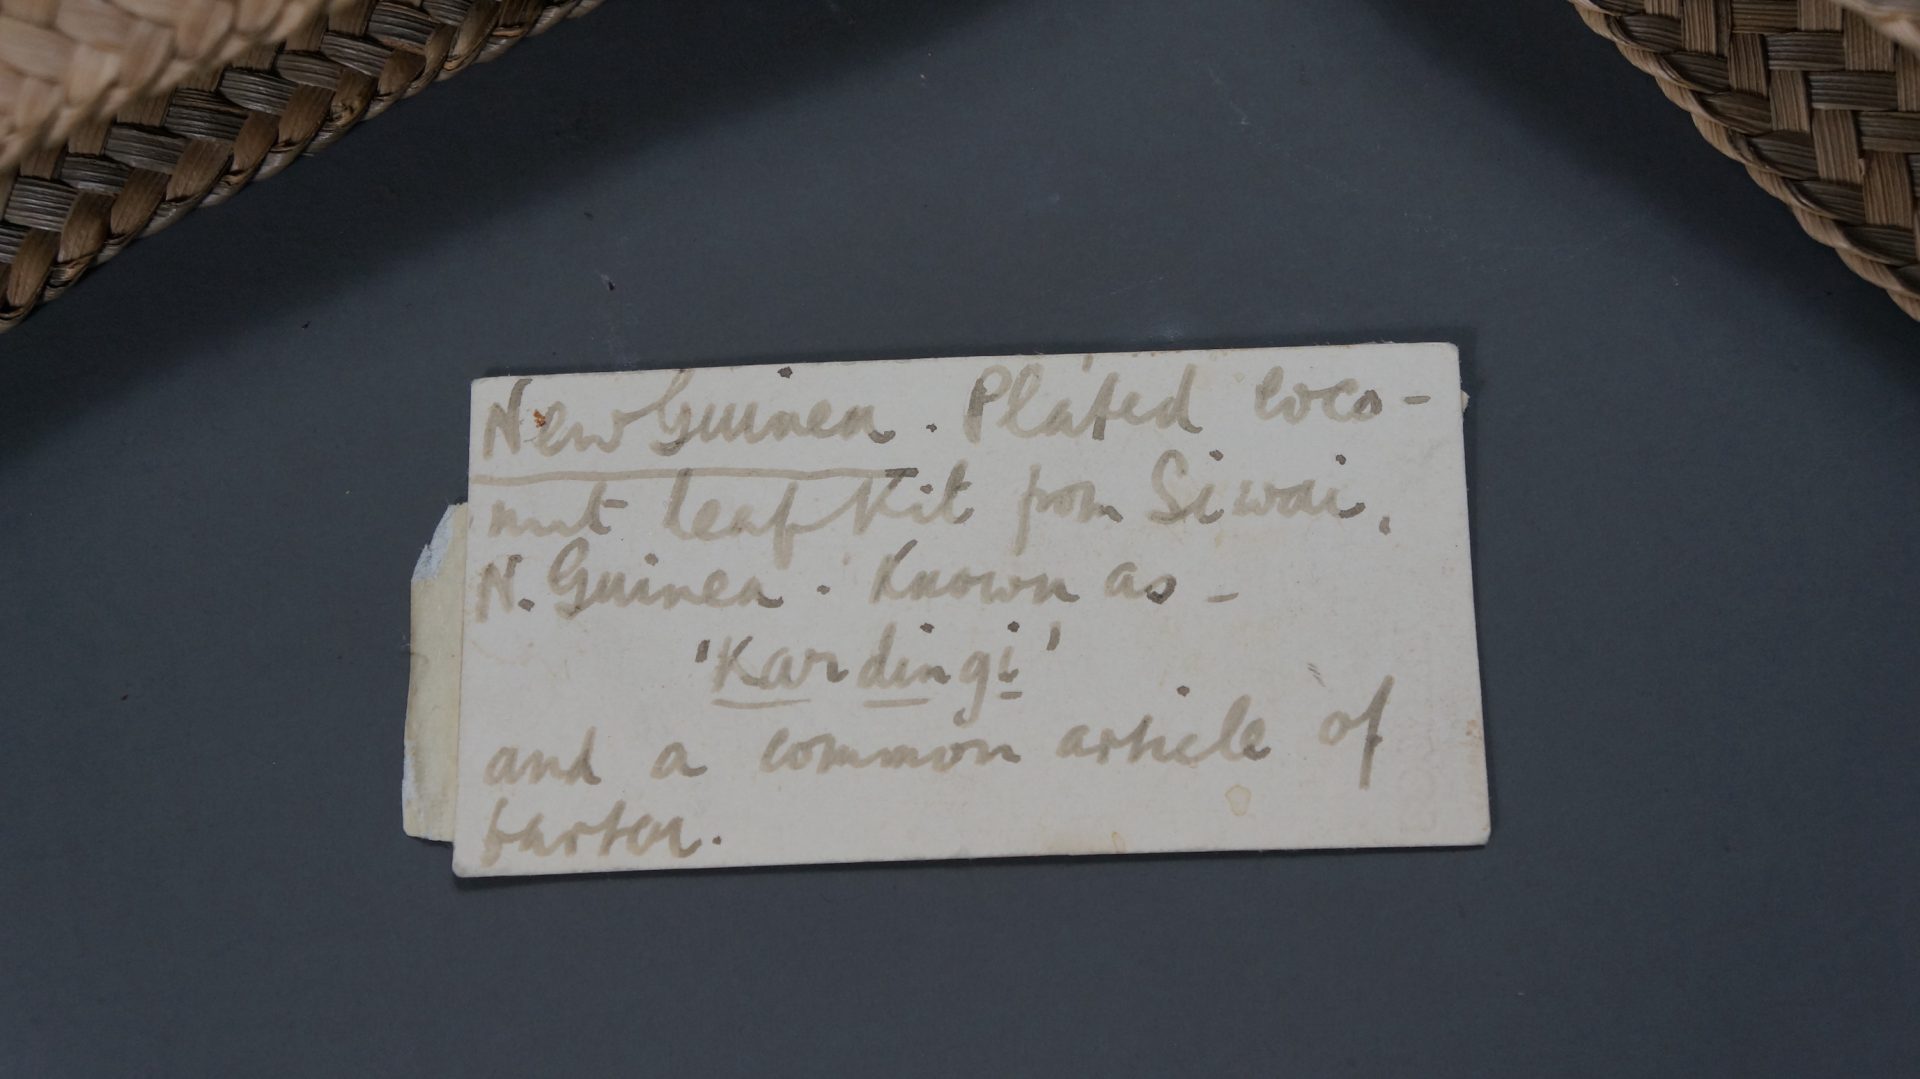 New Guinea. Plated coco-
nut leaf Kit from Siwai,
N. Guinea. Known as -
'Kardingi'
and a common article of
barter.